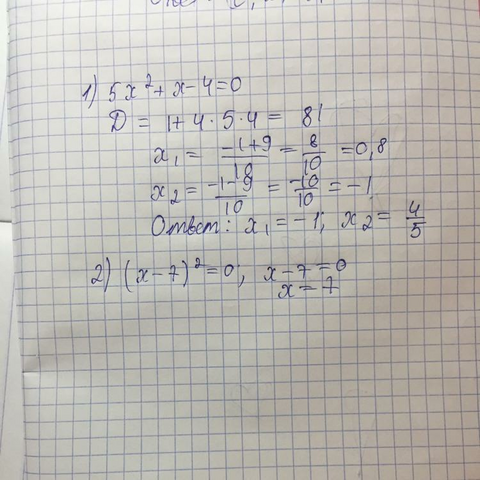 1) 5x² + x - 4 = 0
D = 1 + 4 · 5 · 4 = 81
x₁ = (-1+9)/10 = 8/10 = 0,8
x₂ = (-1-9)/10 = -10/10 = -1
Ответ: x₁ = -1; x₂ = 4/5
2) (x-7)² = 0; x-7 = 0
x = 7